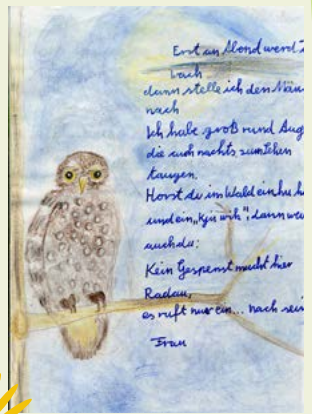 Erst am Abend werd i
wach
dann stelle ich den Mäu
nach
Ich habe groß rund Aug
die auch nachts zum sehen
taugen.
Hörst du im Wald ein hu h
und ein „kju wik“, dann we
auch du:
Kein Gespenst macht hier
Radau,
es ruft nur ein... nach sei
Frau